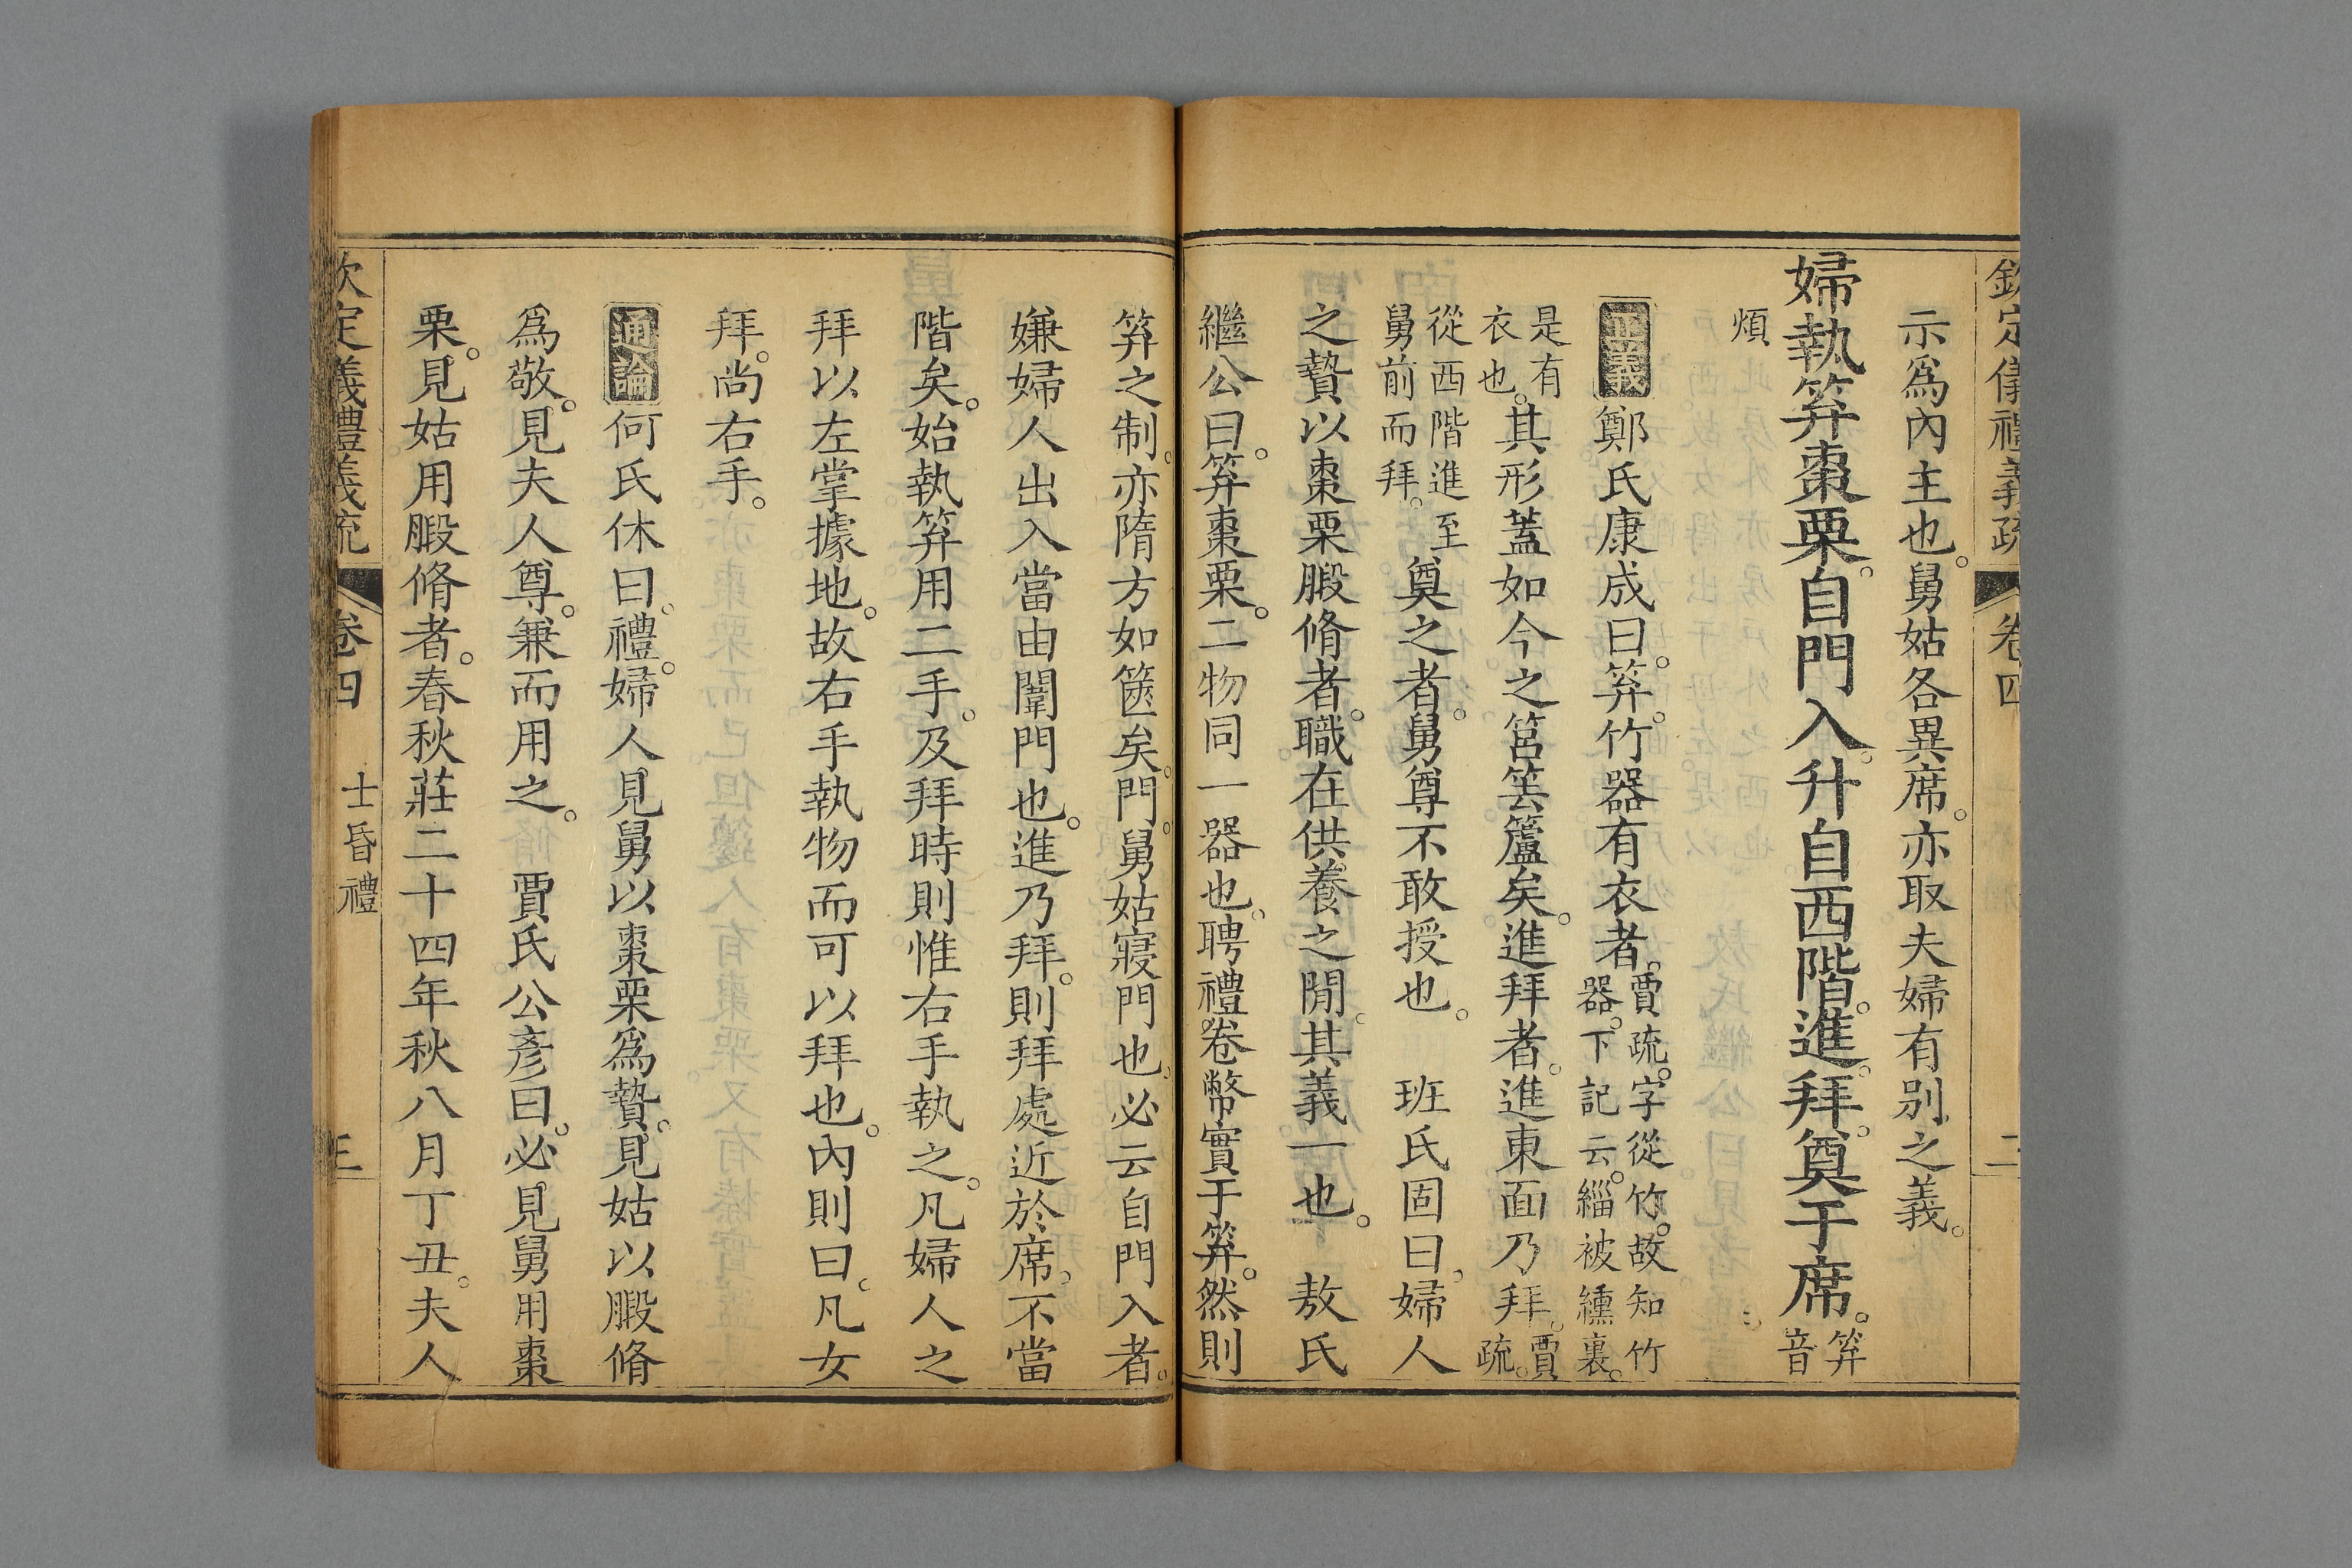 欽定儀禮義疏 卷四 二
示爲內主也。舅姑各異席。亦取夫婦有別之義。
婦執笲棗栗。自門入。升自西階。進拜。奠于席。笲音
煩
正義 鄭氏康成曰。笲。竹器有衣者。賈疏。字從竹。故知竹器。下記云。緇被纁裏。
是有衣也。其形蓋如今之筥𥬔籚矣。進拜者。進東面乃拜。賈疏。
從西階進至舅前而拜。奠之者。舅尊不敢授也。 班氏固曰。婦人
之贄以棗栗腶脩者。職在供養之閒。其義一也。 敖氏
繼公曰。笲棗栗。二物同一器也。聘禮卷幣實于笲。然則
笲之制。亦隋方如篋矣。門。舅姑寢門也。必云自門入者。
嫌婦人出入當由闈門也。進乃拜。則拜處近於席。不當
階矣。始執笲用二手。及拜時則惟右手執之。凡婦人之
拜以左掌據地。故右手執物而可以拜也。內則曰。凡女
拜。尚右手。
通論 何氏休曰。禮。婦人見舅以棗栗爲贄。見姑以腶脩
爲敬。見夫人尊。兼而用之。 賈氏公彥曰。必見舅用棗
栗。見姑用腶脩者。春秋莊二十四年秋八月丁丑。夫人
欽定義禮義疏 卷四 士昏禮 三